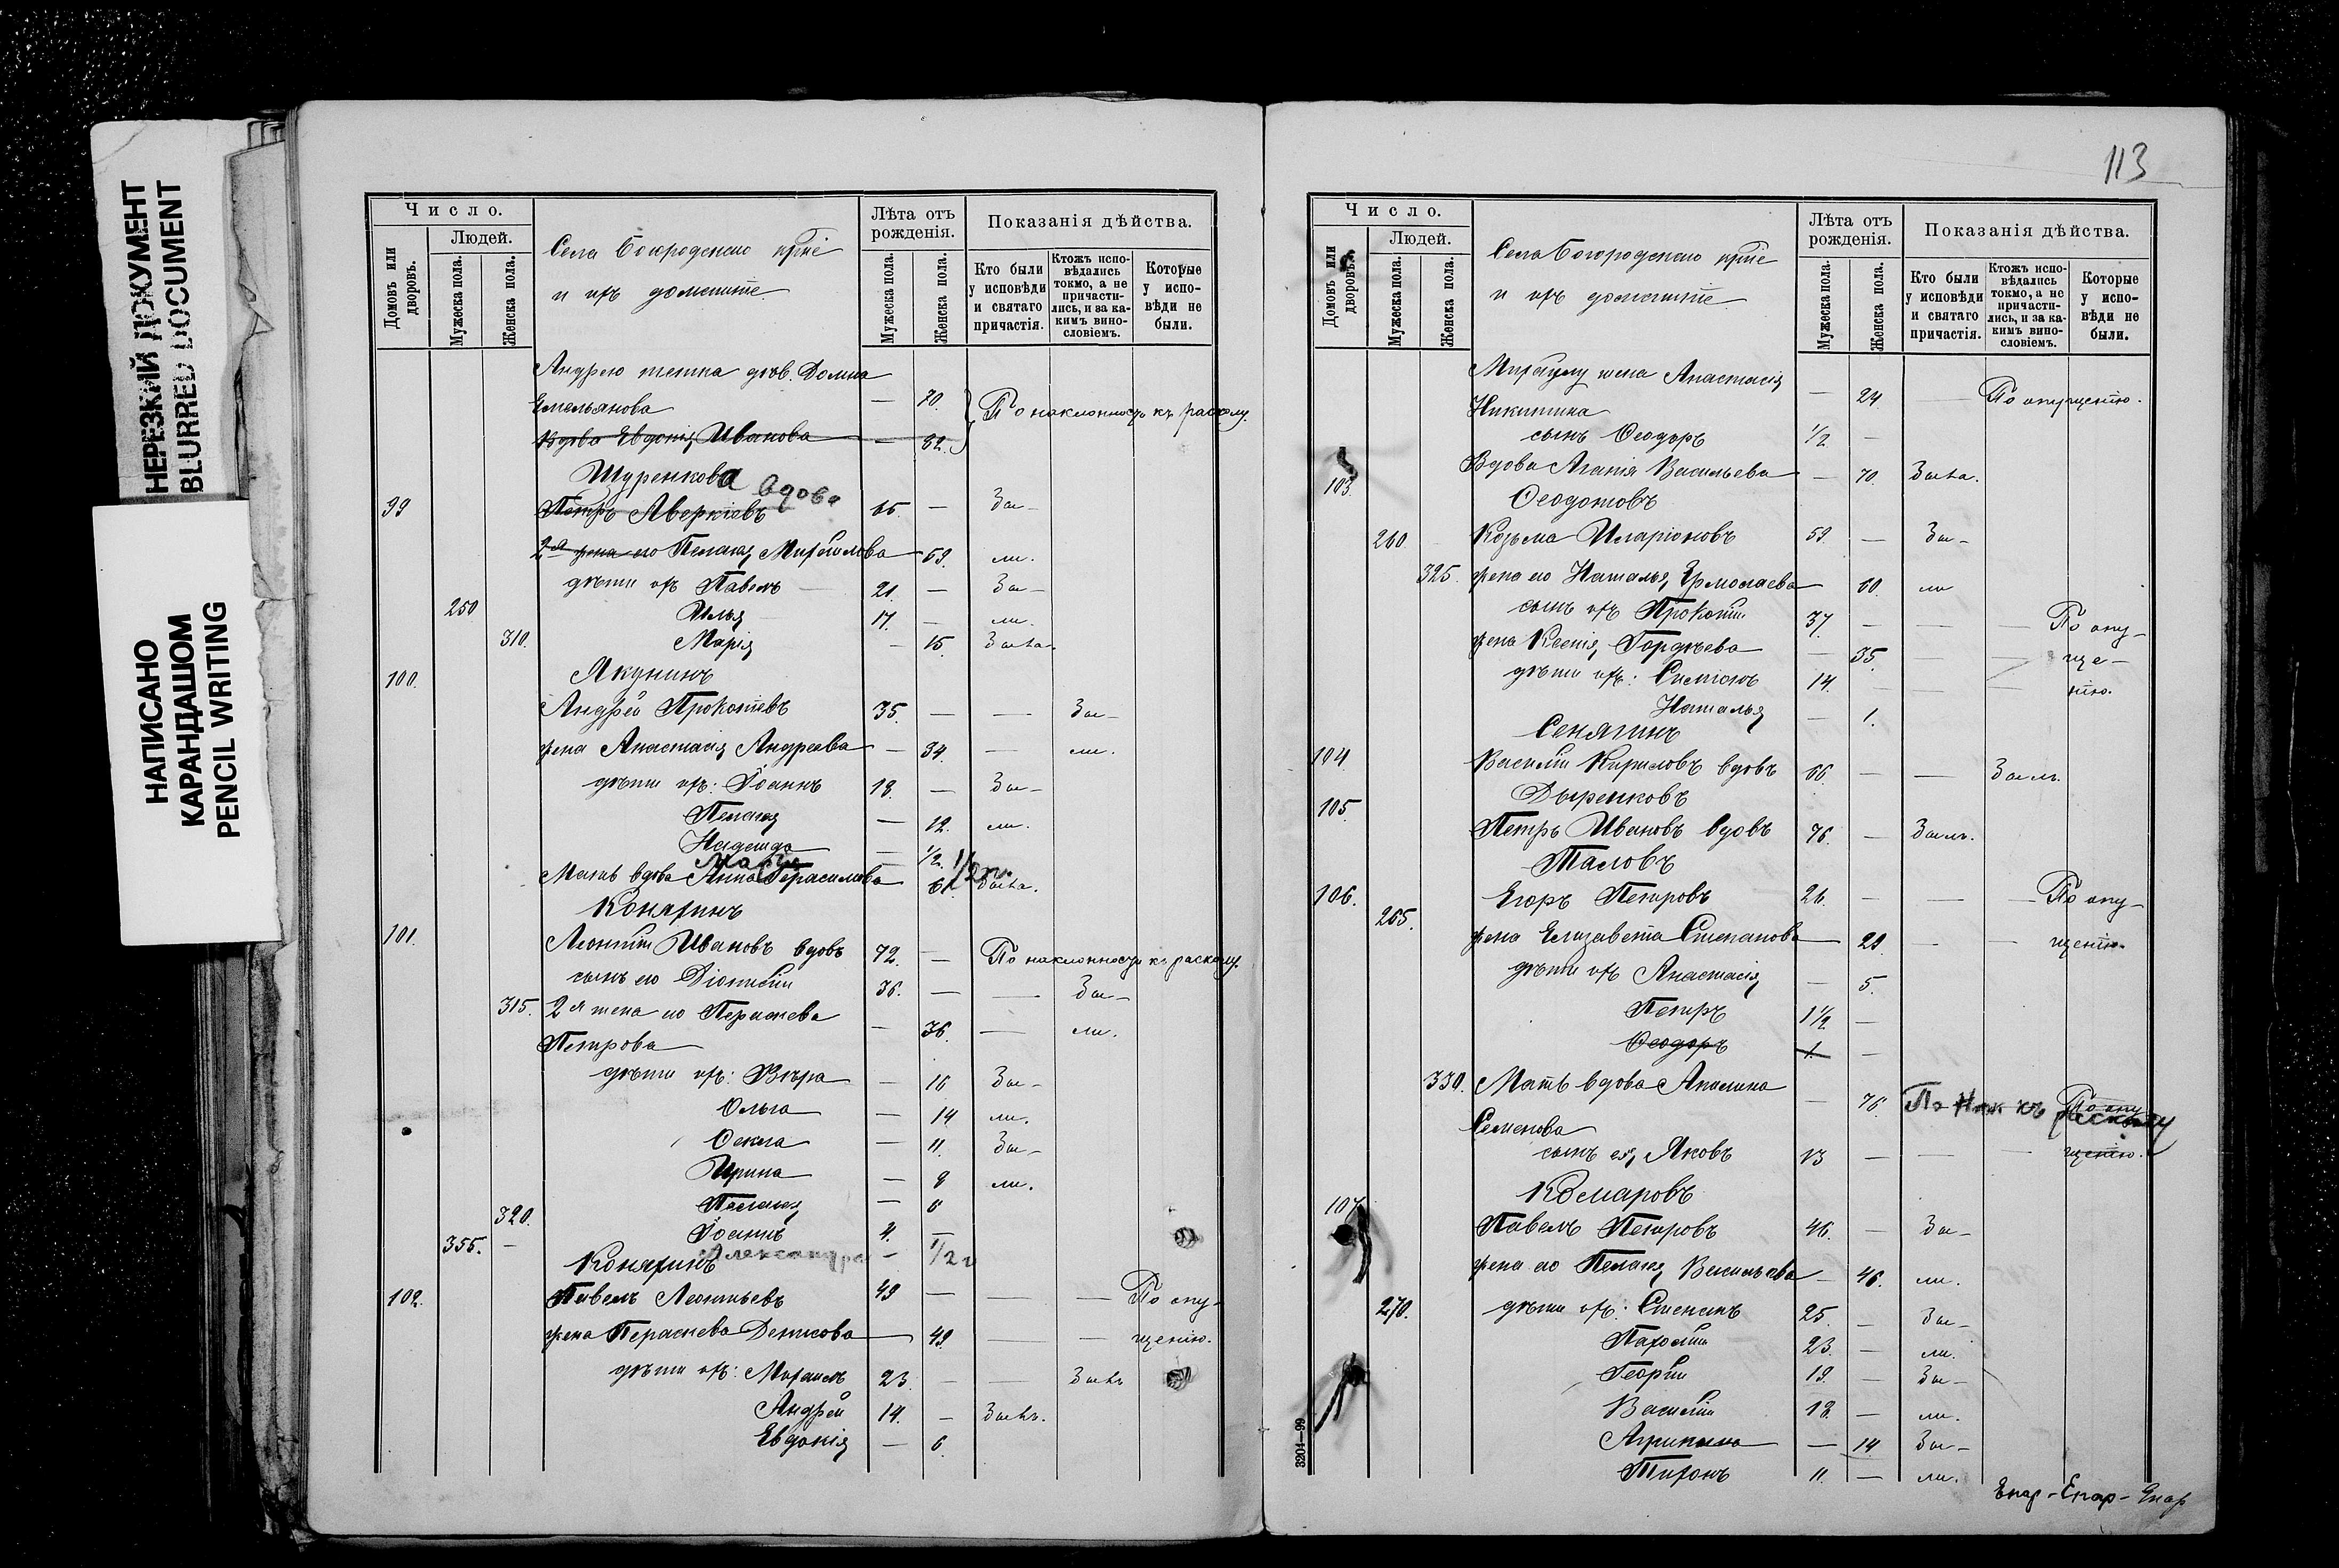 НЕРЕЗКИЙ ДОКУМЕНТ
BLURRED DOCUMENT
НАПИСАНО
КАРАНДАШОМ
PENCIL WRITING
Число.
Людей.
Домовъ или дворовъ.
Мужеска пола.
Женска пола.
Села Богородскаго
и ихъ домашніе
Лѣта отъ рожденія.
Мужеска пола.
Женска пола.
Показанія дѣйства.
Кто были у исповѣди и святаго причастія.
Ктожъ испо-вѣдались токмо, а не причасти-лись, и за ка-кимъ вино-словіемъ.
Которые у испо-вѣди не были.
Андрею тетка дѣв. Домна
Емельянова — 70. По наклонности къ расколу.
Вдова Евдокія Иванова — 82.
Шуренкова вдова
99 Петръ Аверкіевъ 65. — Бы-
2я жена его Пелагія Михайлова 59. ли.
дѣти ихъ Павелъ 21. — Бы-
250 Илья 17. — ли.
310. Марія — 15. Была.
100. Якунинъ
Андрей Прокопіевъ 35. — — Бы-
жена Анастасія Андреева — 34. — ли.
дѣти ихъ: Іоаннъ 18. — Бы-
Пелагія — 12. ли.
Надежда — 1/2.
Марія 1/2 г.
Мать вдова Анна Герасимова 61. Была.
Коняхинъ
101. Леонтій Ивановъ вдовъ 72. — По наклонности къ расколу.
сынъ его Діонисій 36. — — Бы-
315. 2я жена его Параскева
Петрова — 36. — ли.
дѣти ихъ: Вѣра — 16 Бы-
Ольга — 14 ли.
Ѳекла — 11. Бы-
Ирина — 9 ли.
320. Пелагія — 6
355. — Іоаннъ 4. —
Александра — 1/2 г
Коняхинъ
102. Павелъ Леонтьевъ 49 — — — По опу-
жена Параскева Денисова 49. — — щенію.
дѣти ихъ: Михаилъ 23. — — Былъ
Андрей 14. — Былъ.
Евдокія — 6.
113
Число.
Людей.
Домовъ или дворовъ.
Мужеска пола.
Женска пола.
Села Богородскаго
и ихъ домашніе
Лѣта отъ рожденія.
Мужеска пола.
Женска пола.
Показанія дѣйства.
Кто были у исповѣди и святаго причастія.
Ктожъ испо-вѣдались токмо, а не причасти-лись, и за ка-кимъ вино-словіемъ.
Которые у испо-вѣди не были.
Михаилу жена Анастасія
Никитина — 24. По опущенію.
сынъ Ѳеодоръ 1/2 —
103. Вдова Агапія Васильева — 70. Была.
Ѳеодотовъ
260 Козьма Иларіоновъ 59. — Бы-
325. жена его Наталья Ермолаева 60. ли
сынъ ихъ Прокопій 37. — — — По опу-
жена Ксенія Гордѣева — 35. — — ще-
дѣти ихъ: Симеонъ 14. — — нію.
Наталья — 1.
Сенягинъ
104. Василій Кириловъ вдовъ 66 — — Былъ
105. Дыренковъ
Петръ Ивановъ вдовъ 76. — Былъ.
Таловъ
106. Егоръ Петровъ 26. — — — По опу-
265.
жена Елизавета Степанова — 29 — — щенію.
дѣти ихъ Анастасія — 5.
Петръ 1 1/2 —
Ѳеодоръ 1. —
330. Мать вдова Акилина
Семенова — 76. По нак къ расколу По опу
сынъ ея Яковъ 13 — — — щенію.
107. Комаровъ
Павелъ Петровъ 46. — Бы-
жена его Пелагія Васильева — 46. ли.
270. дѣти ихъ: Степанъ 25. — Бы-
Пахомій 23. — ли.
Георгій 19. — Бы-
Василій 18. — ли.
Агрипина — 14 Бы-
Тихонъ 11. — ли.
3204—99